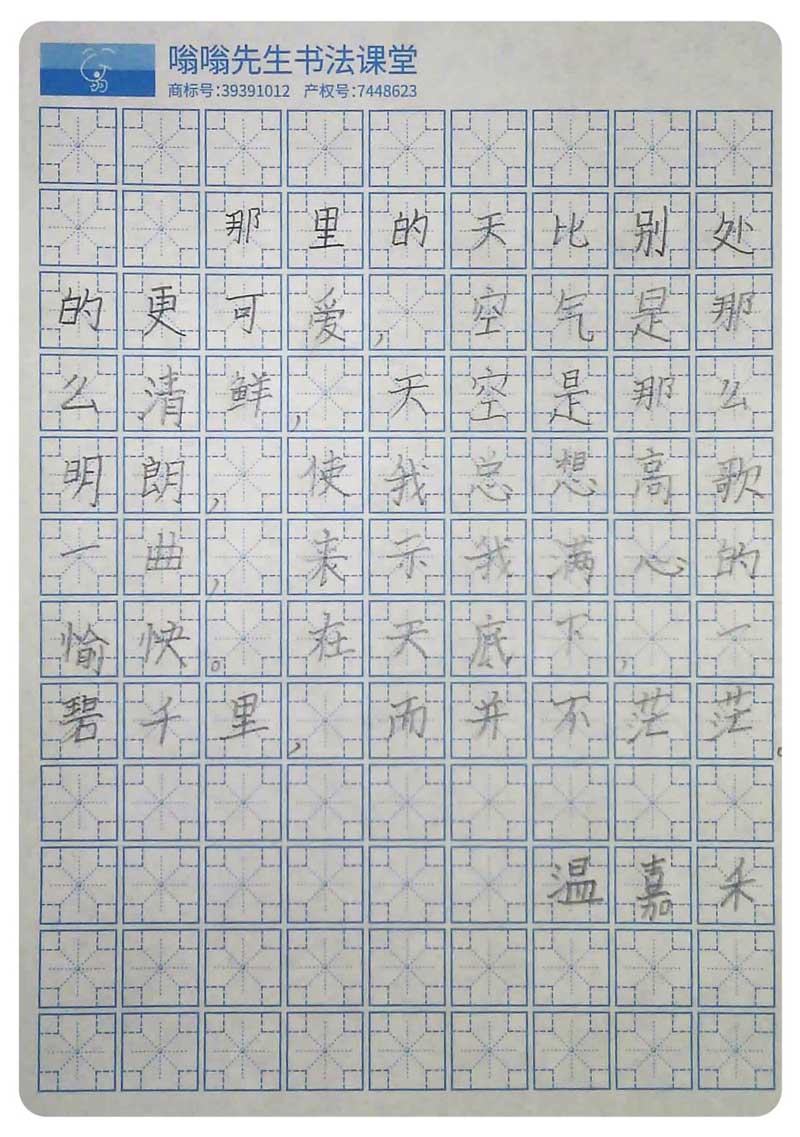 嗡嗡先生书法课堂
商标号:39391012 产权号:7448623
那里的天比别处
的更可爱，空气是那
么清鲜，天空是那么
明朗，使我总想高歌
一曲，表示我满心的
愉快。在天底下，一
碧千里，而并不茫茫。
温嘉禾